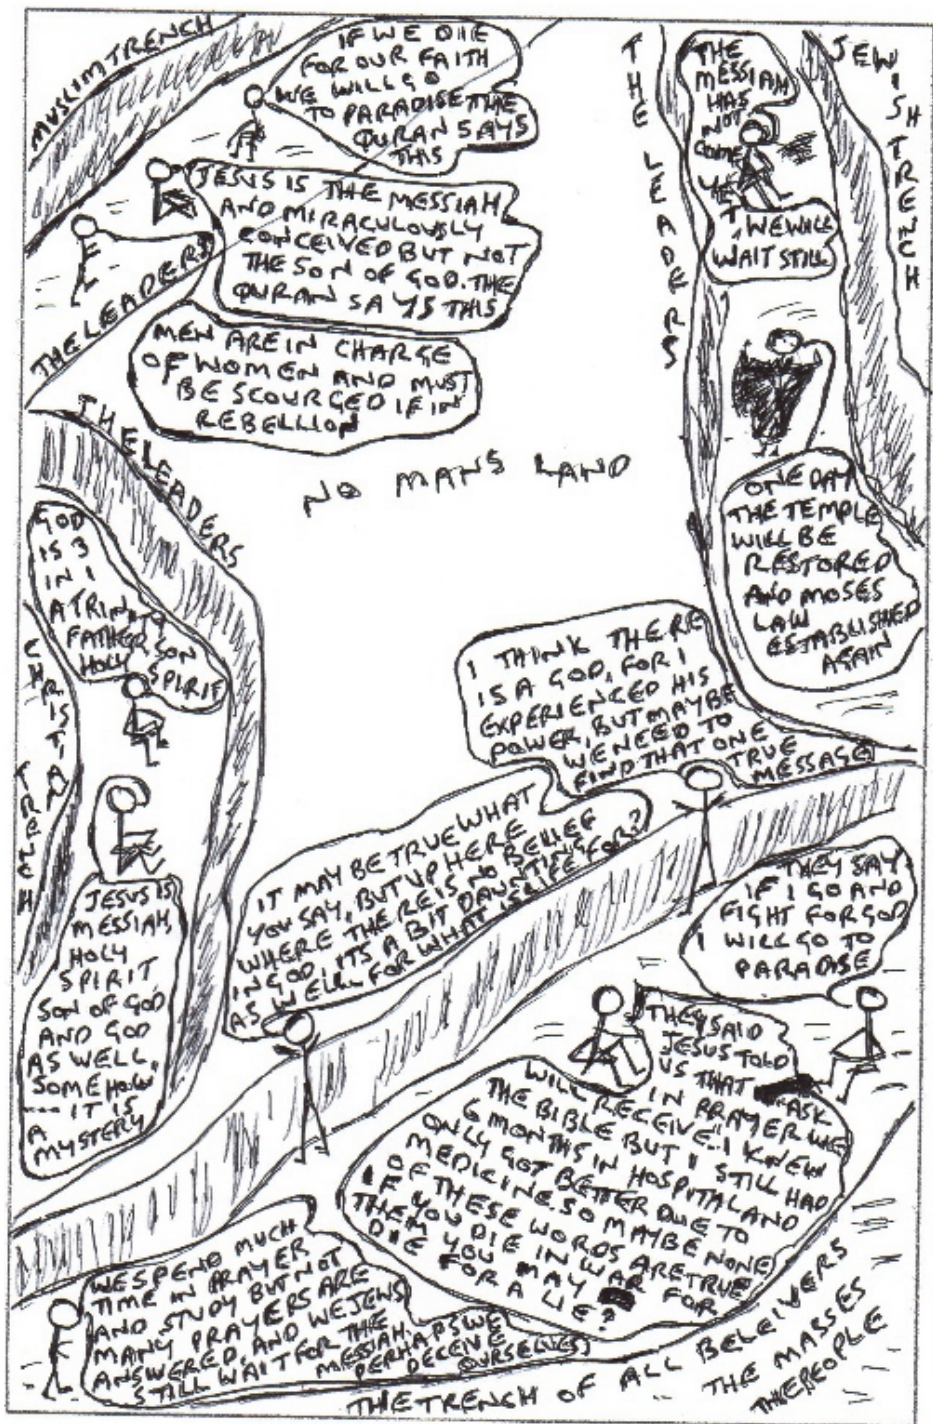 MUSLIM TRENCH
IF WE DIE
FOR OUR FAITH
WE WILL GO
TO PARADISE THE
QURAN SAYS
THIS
JESUS IS THE MESSIAH
AND MIRACULOUSLY
CONCEIVED BUT NOT
THE SON OF GOD. THE
QURAN SAYS THIS
THE LEADERS
MEN ARE IN CHARGE
OF WOMEN AND MUST
BE SCOURGED IF IN
REBELLION
THE LEADERS
JEWISH TRENCH
THE
MESSIAH
HAS
NOT
COME
YET
WE WILL
WAIT STILL
ONE DAY
THE TEMPLE
WILL BE
RESTORED
AND MOSES
LAW
ESTABLISHED
AGAIN
NO MANS LAND
THE LEADERS
GOD
IS 3
IN 1
A TRINITY
FATHER SON
HOLY SPIRIT
CHRISTIAN TRENCH
JESUS IS
MESSIAH,
HOLY
SPIRIT
SON OF GOD
AND GOD
AS WELL,
SOMEHOW
---- IT IS
A
MYSTERY
I THINK THERE
IS A GOD, FOR I
EXPERIENCED HIS
POWER, BUT MAYBE
WE NEED TO
FIND THAT ONE
TRUE
MESSAGE
IT MAY BE TRUE WHAT
YOU SAY, BUT UP HERE
WHERE THERE IS NO BELIEF
IN GOD, ITS A BIT DAUNTING
AS WELL FOR WHAT IS LIFE FOR?
THEY SAY
IF I GO AND
FIGHT FOR GOD
I WILL GO TO
PARADISE
THEY SAID
JESUS TOLD
US THAT ASK
IN PRAYER WE
WILL RECEIVE". I KNEW
THE BIBLE BUT I STILL HAD
6 MONTHS IN HOSPITAL AND
ONLY GOT BETTER DUE TO
MEDICINE. SO MAYBE NONE
OF THESE WORDS ARE TRUE
IF YOU DIE IN WAR FOR
THEM YOU MAY
DIE FOR A LIE?
WE SPEND MUCH
TIME IN PRAYER
AND STUDY BUT NOT
MANY PRAYERS ARE
ANSWERED AND WE JEWS
STILL WAIT FOR THE
MESSIAH.
PERHAPS WE
DECEIVE
OURSELVES
THE TRENCH OF ALL BELEIVERS
THE MASSES
THE PEOPLE